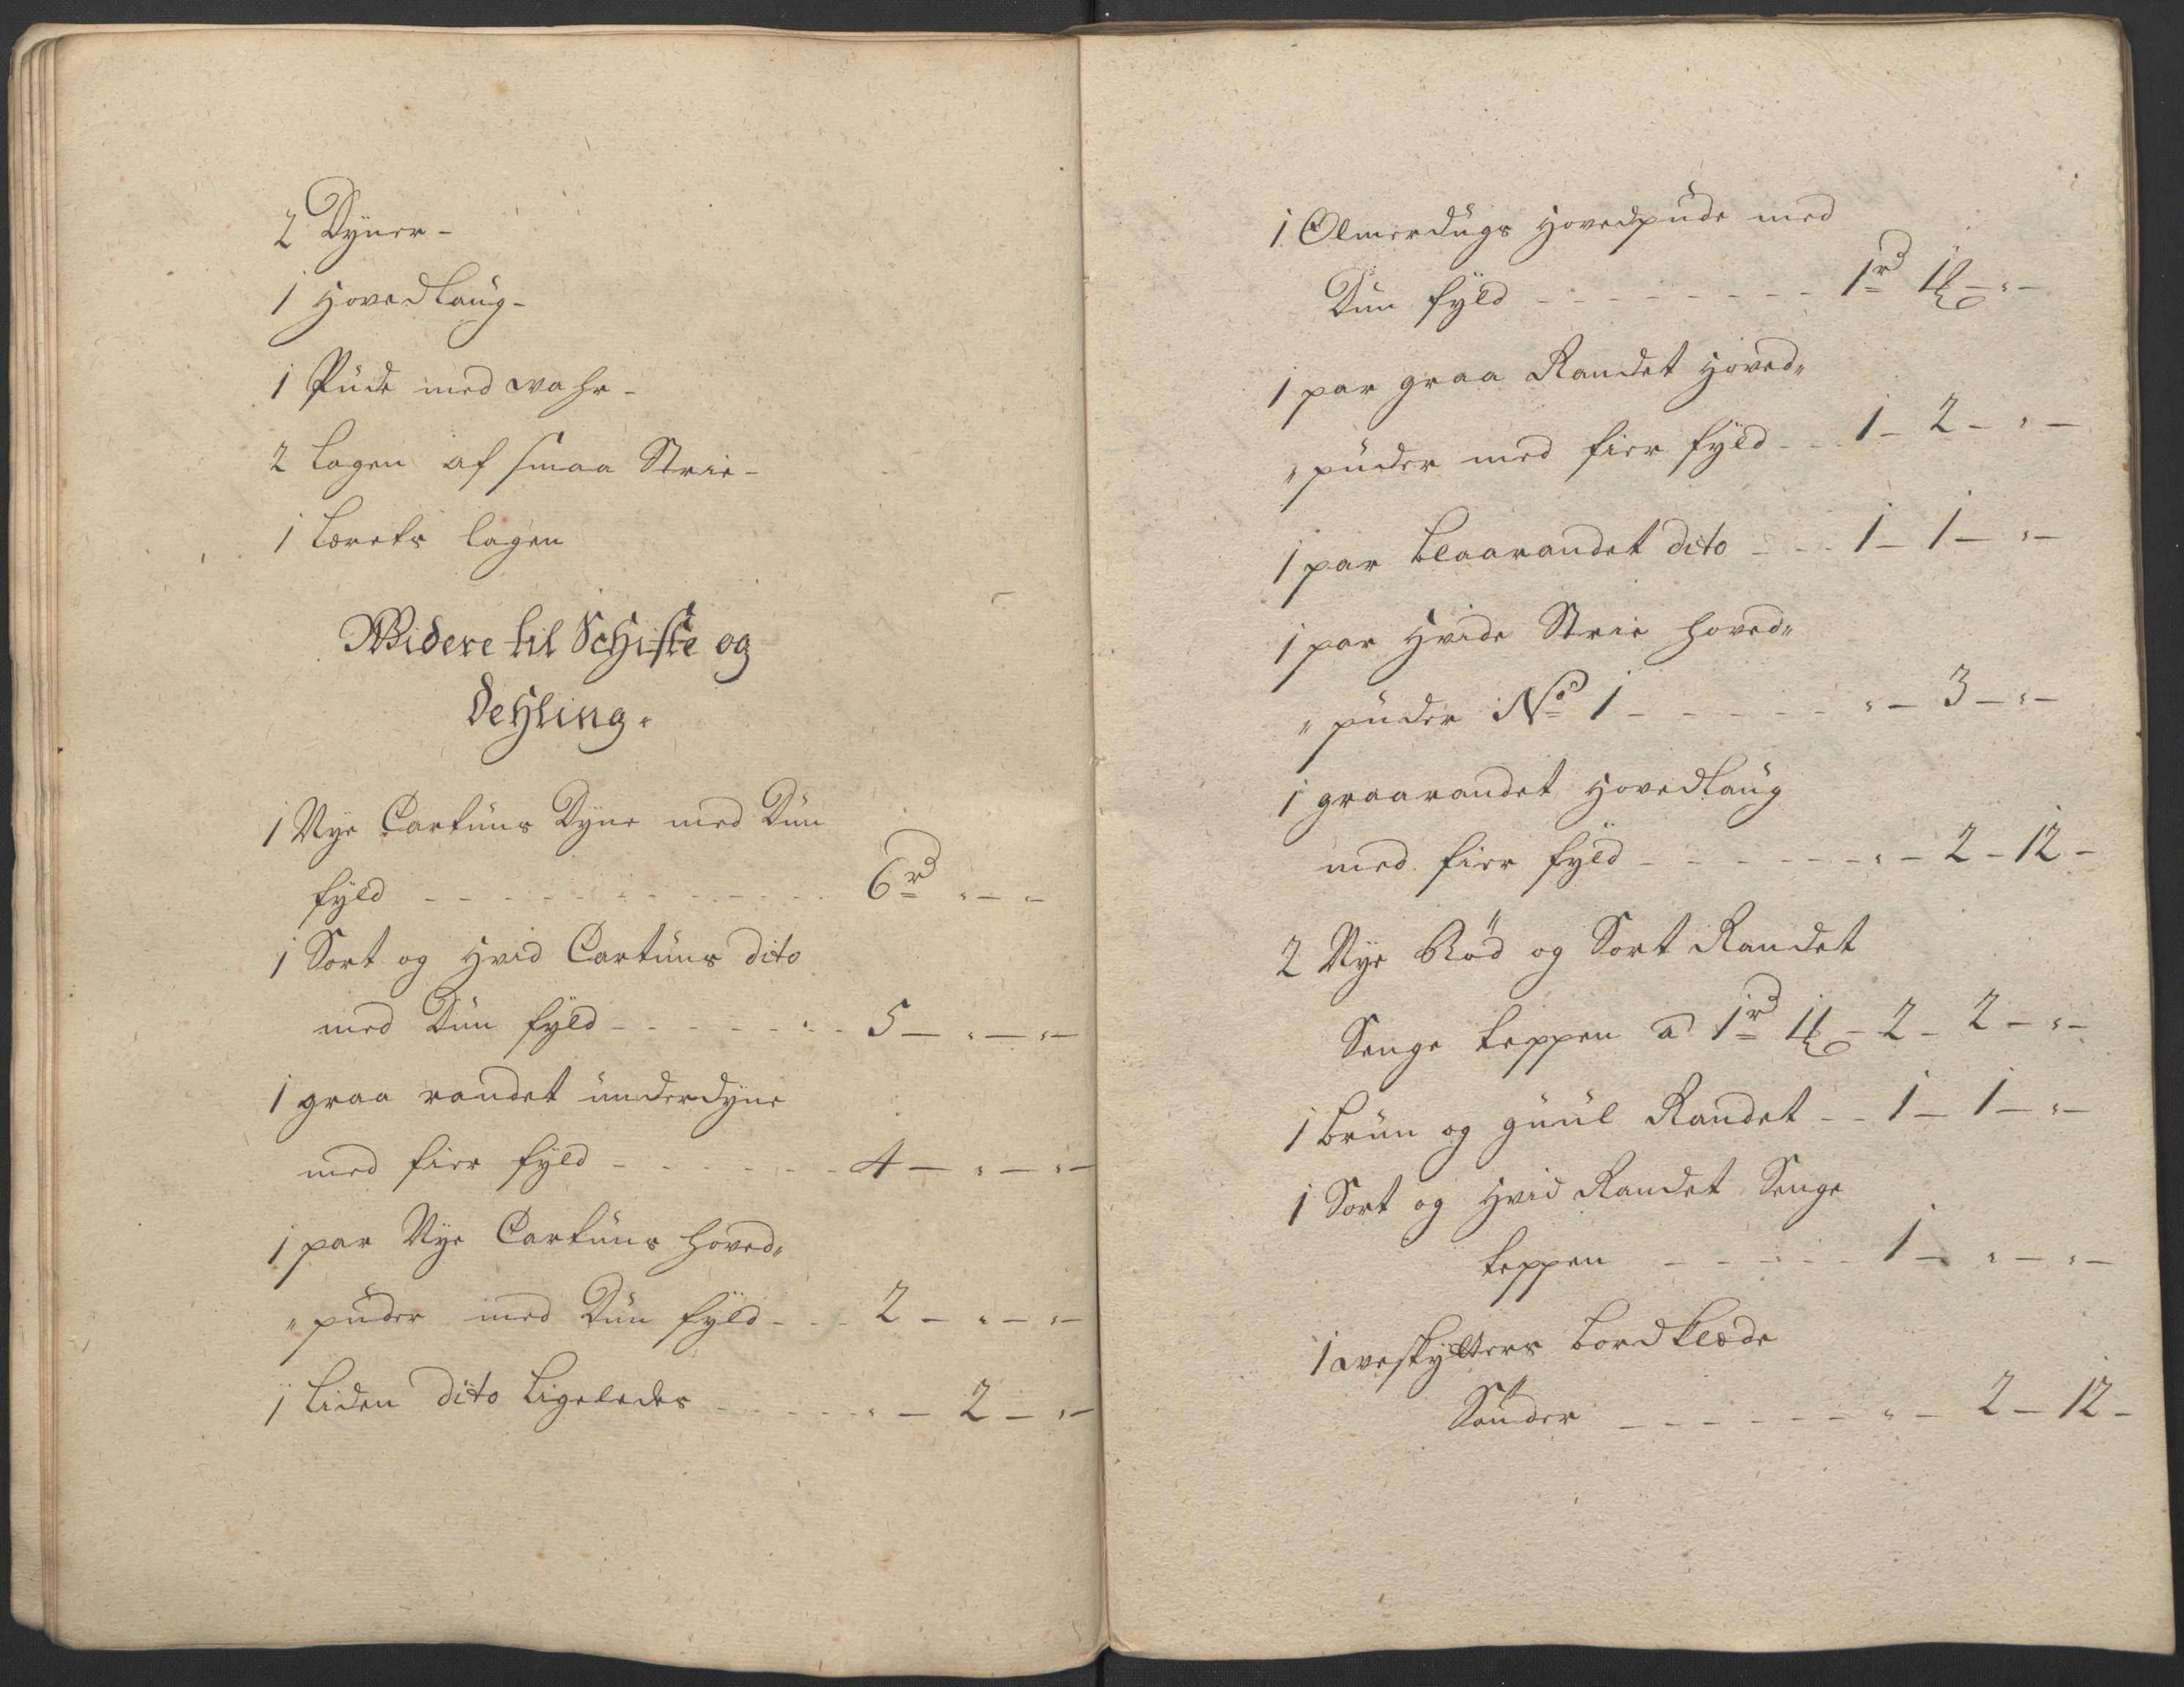 2 Dyner -
1 Hovedlaug -
1 Püde med wahr -
2 Lagen af smaa Strie -
1 Lærets lagen
Widere til Schifte og
dehling.
1 Nye Cartüns Dyne med Dün
fyld - - - - - - - - - 6 rd " - " -
1 Sort og Hvid Cartüns dito
med Dün fyld - - - - - - 5 - " - " -
1 graa randet ünderdyne
med fier fyld - - - - - - 4 - " - " -
1 par Nye Cartüns hoved"
"püder med Dün fyld - - - 2 - " - " -
1 Liden dito Ligeledes - - - - " - 2 - " -
1 Olmerdügs Hovedpüde med
Dün fyld - - - - - - - - 1 rd 1 ℔ - " -
1 par graa Randet Hoved"
"püder med fier fyld - - 1 - 2 - " -
1 par blaarandet dito - - - 1 - 1 - " -
1 par Hvide Strie hoved"
"püder No 1 - - - - - - " - 3 - " -
1 graarandet Hovedlaug
med fier fyld - - - - - - " - 2 - 12 -
2 Nye Röd og Sort Randet
Senge teppen a 1 rd 1 ℔ - 2 - 2 - " -
1 brün og güül Randet - - 1 - 1 - " -
1 Sort og Hvid Randet Senge
teppen - - - - - 1 - " - " -
1 bordklæde
Sönder - - - - - - " - 2 - 12 -